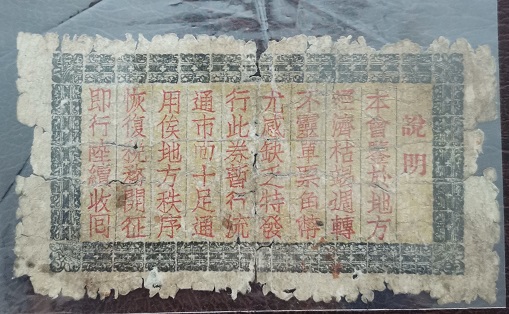 說明
本會㦖於地方
經濟枯竭週轉
不靈單票角幣
尤感缺乏特發
行此券暫行流
通市面十足通
用俟地方秩序
恢復稅務開征
即行陸續收回